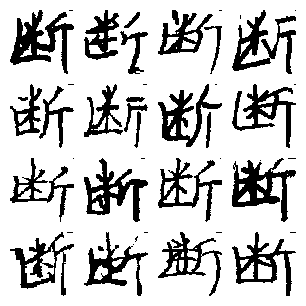 断断断断
断断断断
断断断断
断断断断